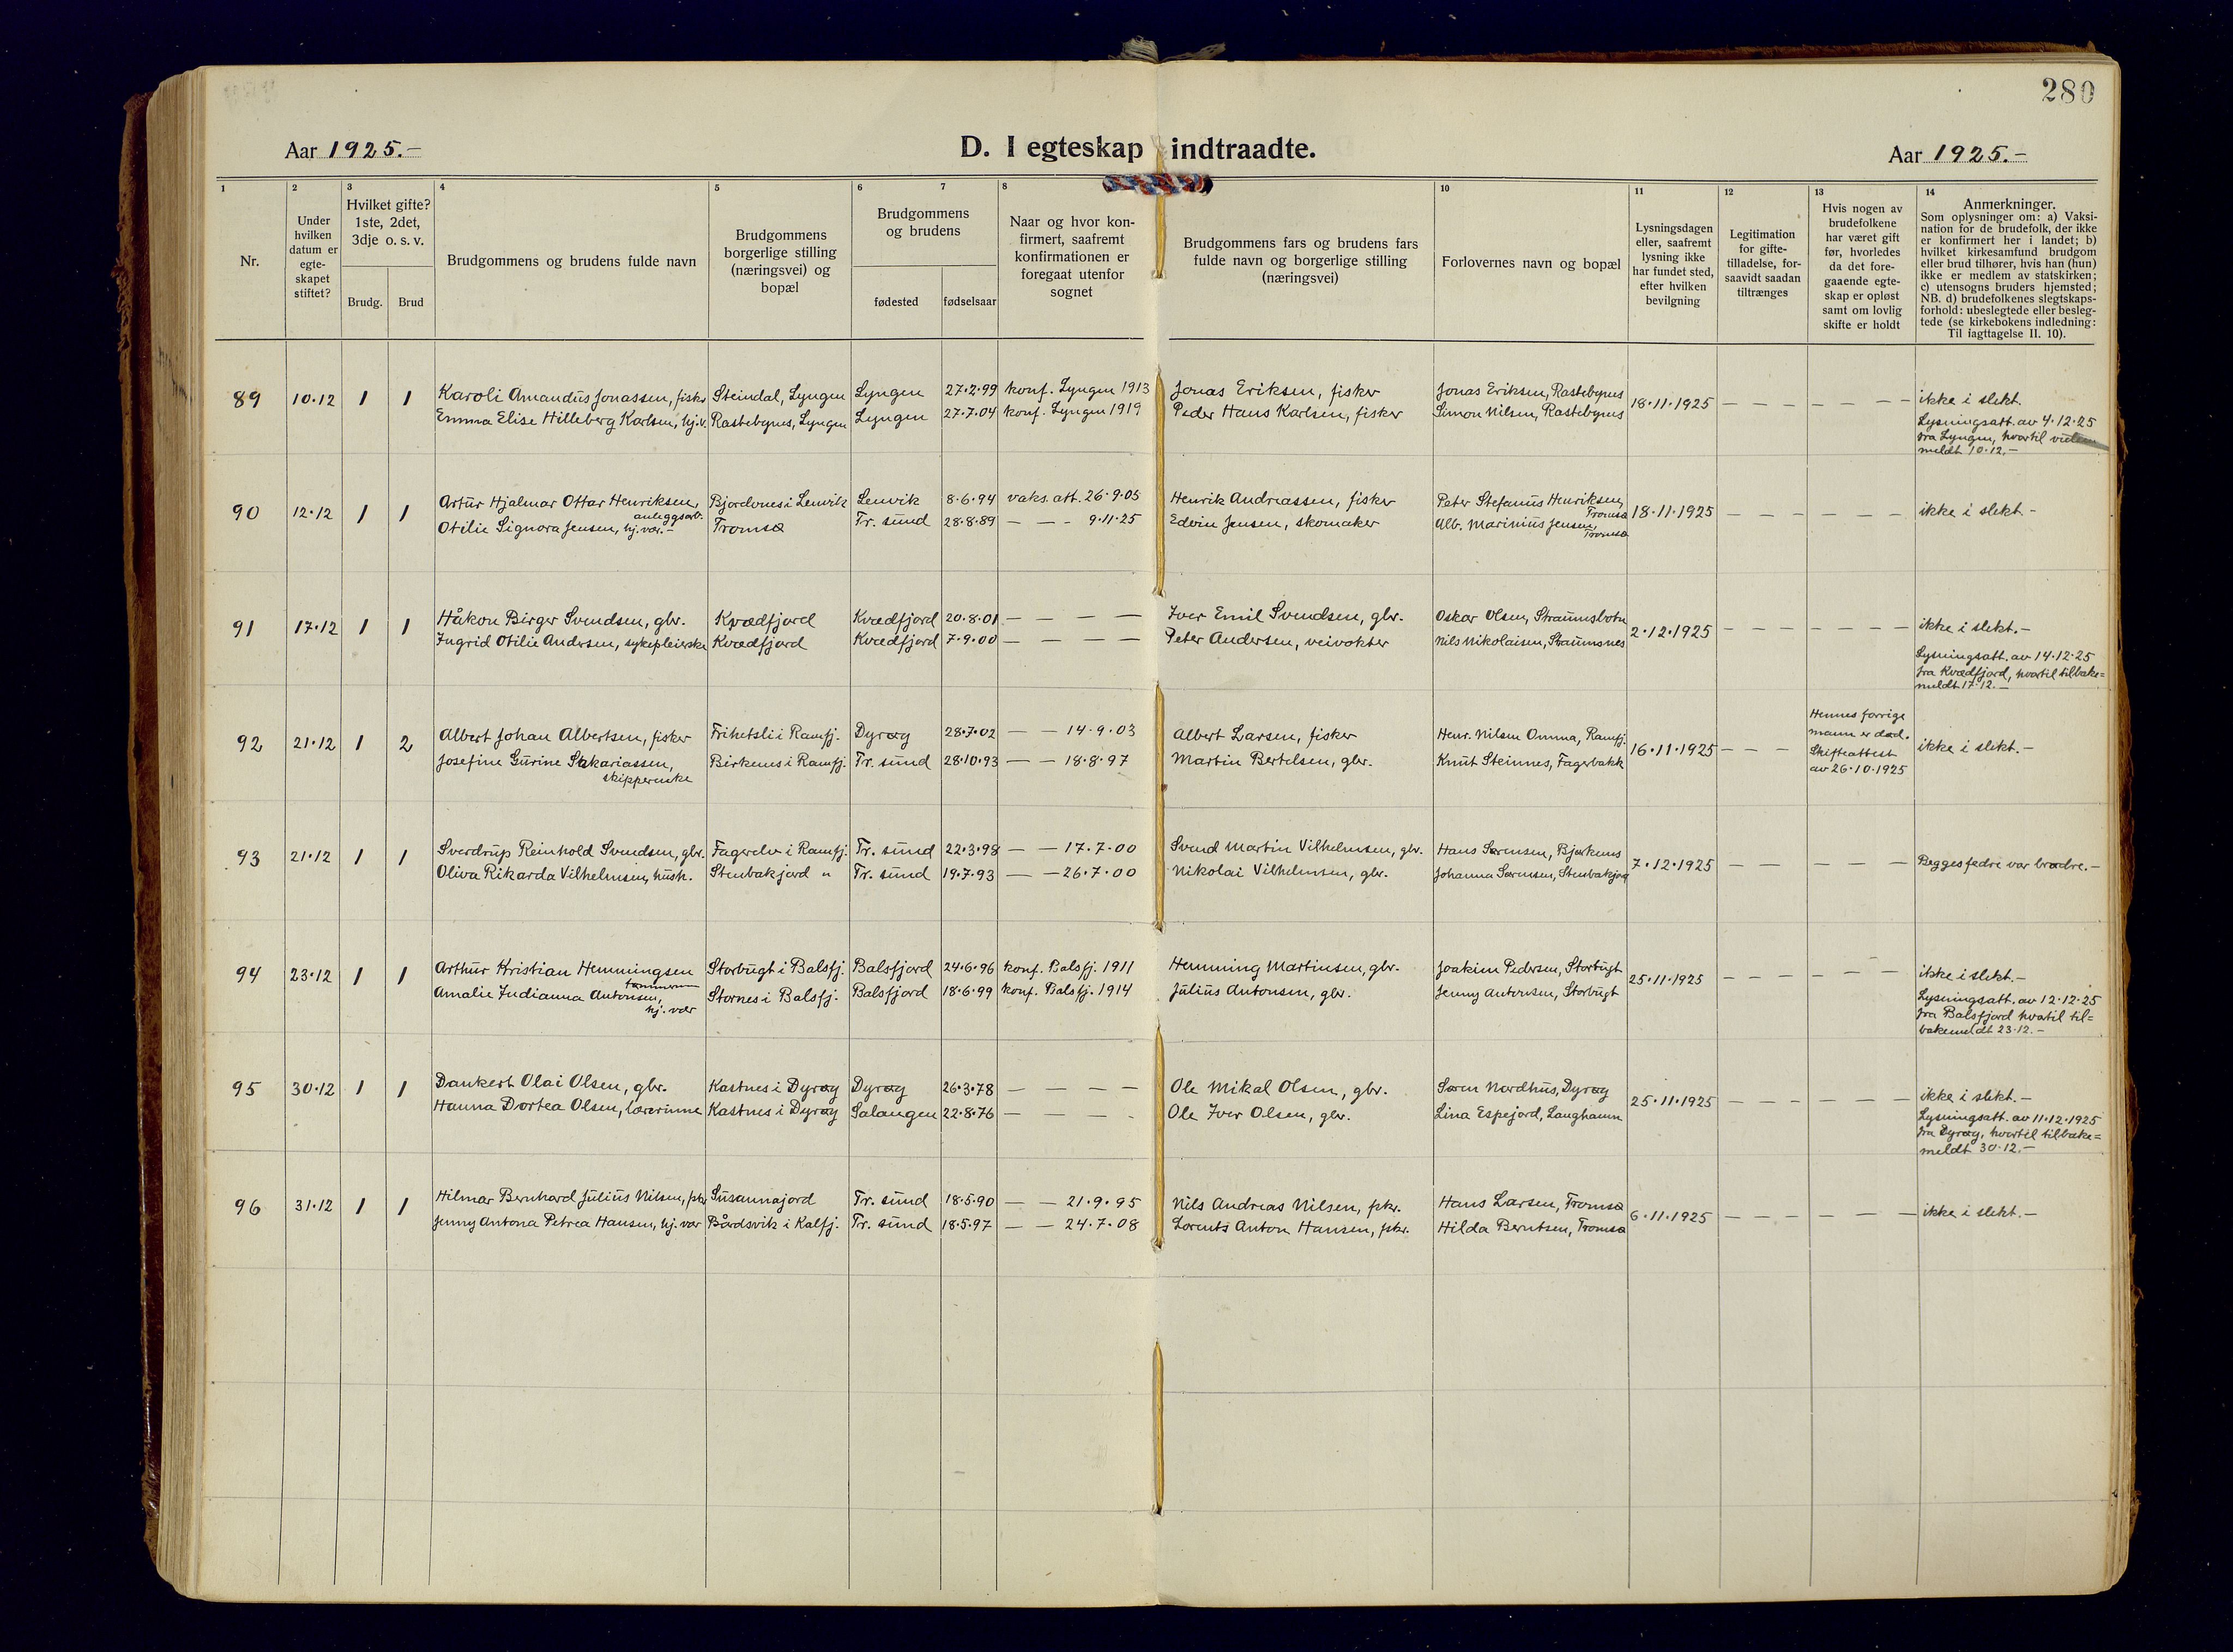 280
Aar 1925.-
D. I egteskap indtraadte.
Aar 1925.-
1 2 3 4 5 6 7 8 10 11 12 13 14
Nr.
Under hvilken datum er egte-skapet stiftet?
Hvilket gifte? 1ste, 2det, 3dje o. s. v.
Brudg. Brud
Brudgommens og brudens fulde navn
Brudgommens borgerlige stilling (næringsvei) og bopæl
Brudgommens og brudens
fødested fødselsaar
Naar og hvor kon-firmert, saafremt konfirmationen er foregaat utenfor sognet
Brudgommens fars og brudens fars fulde navn og borgerlige stilling (næringsvei)
Forlovernes navn og bopæl
Lysningsdagen eller, saafremt lysning ikke har fundet sted, efter hvilken bevilgning
Legitimation for gifte-tilladelse, for-saavidt saadan tiltrænges
Hvis nogen av brudefolkene har været gift før, hvorledes da det fore-gaaende egte-skap er opløst samt om lovlig skifte er holdt
Anmerkninger.
Som oplysninger om: a) Vaksi-
nation for de brudefolk, der ikke
er konfirmert her i landet; b)
hvilket kirkesamfund brudgom
eller brud tilhører, hvis han (hun)
ikke er medlem av statskirken;
c) utensogns bruders hjemsted;
NB. d) brudefolkenes slegtskaps-
forhold: ubeslegtede eller besleg-
tede (se kirkebokens indledning:
Til iagttagelse II. 10).
89 10.12 1 1
Karoli Amandus Jonassen, fisker Steindal, Lyngen Lyngen 27.2.99 konf. Lyngen 1913 Jonas Eriksen, fisker Jonas Eriksen, Rastebynes
Emma Elise Hilleberg Karlsen, hj.v. Rastebynes, Lyngen Lyngen 27.7.04 konf. Lyngen 1919 Peder Hans Karlsen, fisker Simon Nilsen, Rastebynes
18.11.1925 — — — — — — ikke i slekt.
Lysningsatt. av 4.12.25
fra Lyngen, hvortil
meldt 10.12.-
90 12.12 1 1
Artur Hjalmar Ottar Henriksen, anleggsarb. Bjordvnes i Lenvik Lenvik 8.6.94 vaks. att. 26.9.05 Henrik Andreassen, fisker Peter Stefanus Henriksen, Tromsø
Otilie Signora Jensen, hj. vær.- Tromsø Tr. sund 28.8.89 — — - 9.11.25 Edvin Jensen, skomaker Alb. Marinius Jensen, Tromsø
18.11.1925 — — — — — — ikke i slekt -
91 17.12 1 1
Håkon Birger Svendsen, gbr. Kvædfjord Kvædfjord 20.8.01 — — — — Iver Emil Svendsen, gbr. Oskar Olsen, Straumsbotn
Ingrid Otilie Andersen, sykepleierske Kvædfjord Kvædfjord 7.9.00 — — — — Peter Andersen, veivokter Nils Nikolaisen, Straumsnes
2.12.1925 — — — — — — ikke i slekt.-
Lysningsatt. av 14.12.25
fra Kvædfjord, hvortil tilbake=
meldt 17.12.-
92 21.12 1 2
Albert Johan Albertsen, fisker Frihetsli i Ramfj. Dyrøy 28.7.02 — — 14.9.03 Albert Larsen, fisker Henr. Nilsen Omma, Ramfj.
Josefine Gurine Sakariassen, skipperenke Birkenes i Ramfj. Tr. sund 28.10.93 — — 18.8.97 Martin Bertelsen, gbr. Knut Steinnes, Fagerbakk
16.11.1925 — — —
Hennes forrige
mann er død.
Skifteattest
av 26.10.1925
ikke i slekt.-
93 21.12 1 1
Sverdrup Reinhold Svendsen, gbr. Fagerelv i Ramfj. Tr. sund 22.3.98 — — 17.7.00 Svend Martin Vilhelmsen, gbr. Hans Sørensen, Bjerkenes
Oliva Rikarda Vilhelmsen, hush. Stenbakjord " Tr. sund 19.7.93 — — 26.7.00 Nikolai Vilhelmsen, gbr. Johanna Sørensen, Stenbakjord
7.12.1925 — — — — — Begges fedre var brødre.-
94 23.12 1 1
Arthur Kristian Hemmingsen tømmerm Storbugt i Balsfj. Balsfjord 24.6.96 konf. Balsfj. 1911 Hemming Martinsen, gbr. Joakim Pedersen, Storbugt
Amalie Indianna Antonsen, hj. vær Stornes i Balsfj. Balsfjord 18.6.99 konf. Balsfj. 1914 Julius Antonsen, gbr. Jenny Antonsen, Storbugt
25.11.1925 — — — — — — ikke i slekt.-
Lysningsatt. av 12.12.25
fra Balsfjord hvortil til=
bakemeldt 23.12.-
95 30.12 1 1
Dankert Olai Olsen, gbr. Kastnes i Dyrøy Dyrøy 26.3.78 — — — — Ole Mikal Olsen, gbr. Søren Nordhus, Dyrøy
Hanna Dortea Olsen, lærerinne Kastnes i Dyrøy Salangen 22.8.76 — — — - Ole Iver Olsen, gbr. Lina Espejord, Langhamn
25.11.1925 — — — — — — ikke i slekt.-
Lysningsatt. av 11.12.1925
fra Dyrøy, hvortil tilbake=
meldt 30.12.-
96 31.12 1 1
Hilmar Bernhard Julius Nilsen, fskr Susannajord Tr. sund 18.5.90 — — 21.9.95 Nils Andreas Nilsen, fskr. Hans Larsen, Tromsø
Jenny Antona Petrea Hansen, hj. vær Bårdsvik i Kalfj. Tr. sund 18.5.97 — — 24.7.08 Lorents Anton Hansen, fskr. Hilda Berntsen, Tromsø
6.11.1925 — — — — — — ikke i slekt.-